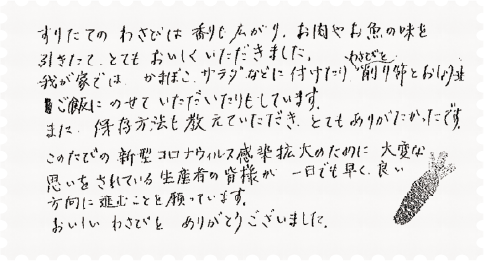 すりたての わさびは 香りも 広がり、お肉や お魚の味を
引きたて、とても おいしく いただきました。
我が家では かまぼこ、サラダなどに 付けたり わさびを 削り節と おしょう油
ご飯に のせて いただいたりも しています。
また、保存方法も 教えていただき、とても ありがたかったです。
このたびの 新型コロナウィルス感染拡大のために 大変な
思いをされている 生産者の皆様が 一日でも早く、良い
方向に 進むことを 願っています。
おいしい わさびを ありがとうございました。